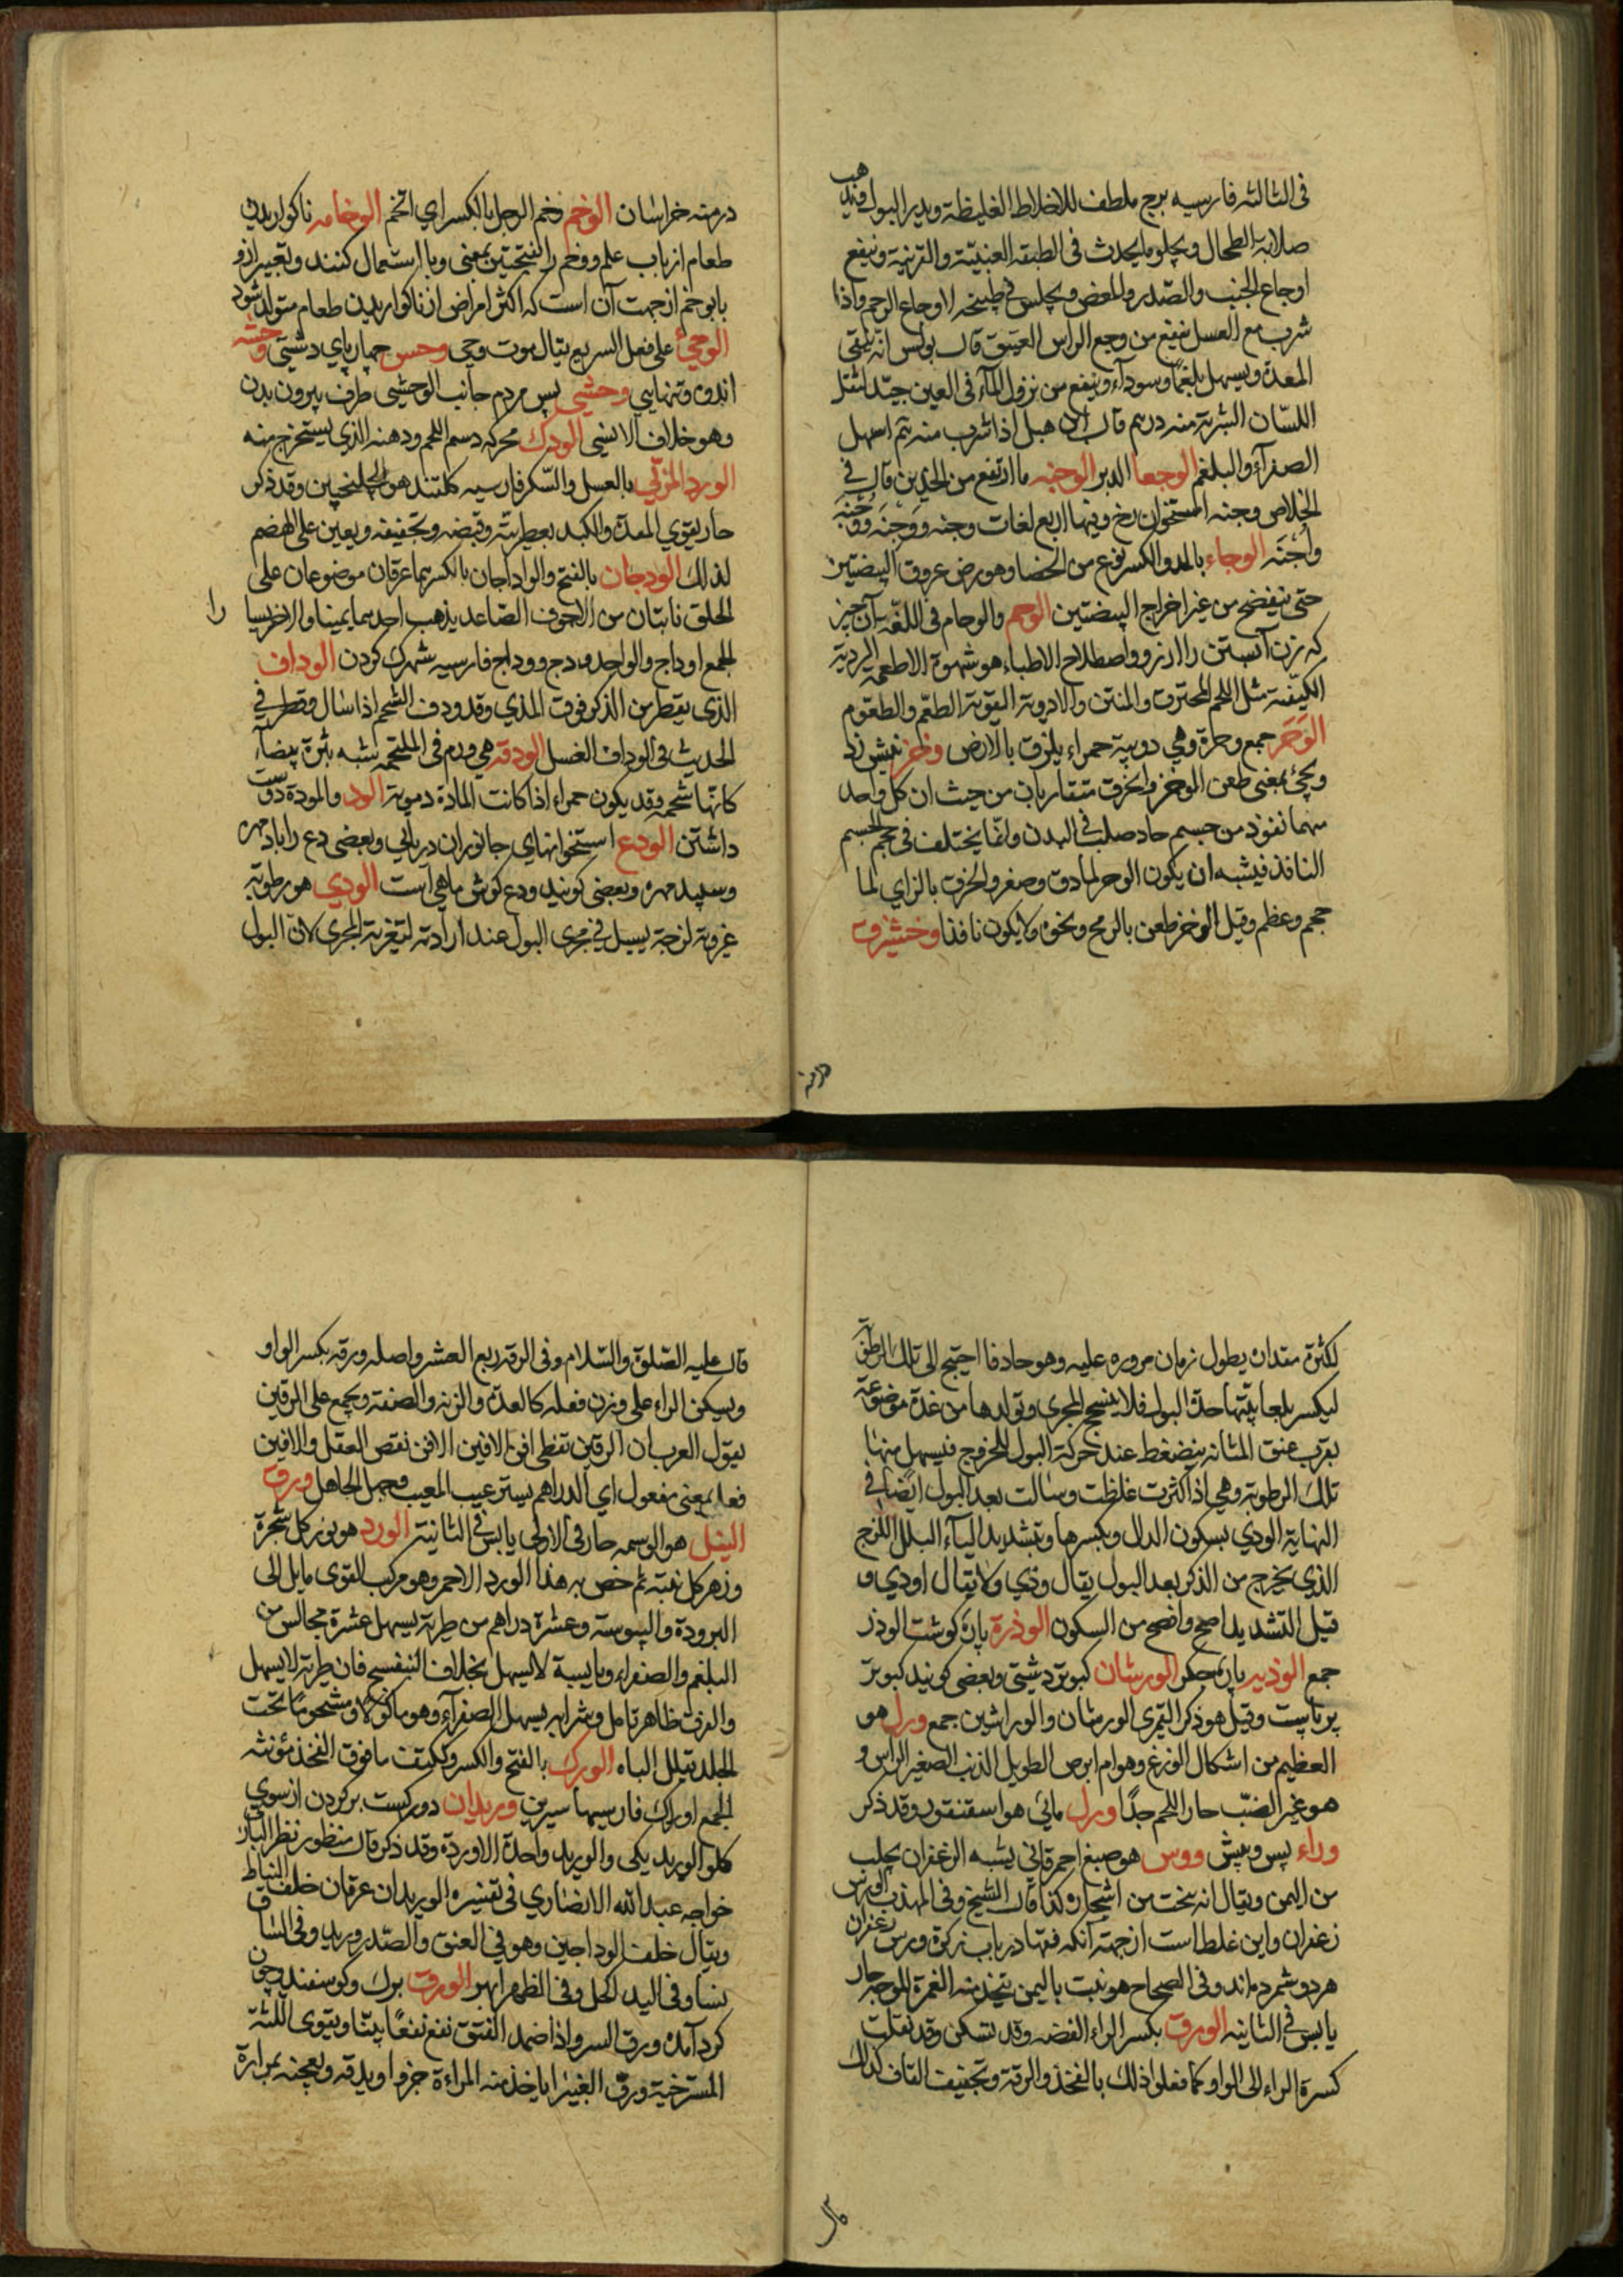 فى الثالثه فارسيه برج ملطف للاخلاط الغليظة ويدر البول ويذهب
صلابة الطحال ويجلو ما يحدث فى الطبقه العنبيّة والقرنية وينفع
اوجاع الجنب والصّدر والمغص ويجلس فى طبيخه لاوجاع الرحم واذا
شرب مع العسل نفع من وجع الراس العتيق قال بولس انه ينقي
المعدة ويسهل بلغمًا وسودآء وينفع من نزول المآء فى العين جيّد لثقل
اللسّان الشربة منه درهم قال ابن هبل اذا شرب منه ثم اسهل
الصفرآء والبلغم الوجعا الدبر الوجنه ما ارتفع من الخدين قال فى
الخلاص وجنه استخوان رخ وفيها اربع لغات وجنه ووِجْنَه ووُجْنَه
واُجْنَه الوجاء بالمد والكسر نوع من الخصا وهو رض عروق البيضتين
حتى تنفضخ من غير اخراج البيضتين الوحم والوحام فى اللغّه آن چيز
كه زن آبستن را آرزو واصطلاح الاطباء هو شهوة الاطعمه الردية
الكيفّية مثل اللحم المحترق والمنتن والادوية القوية الطعّم والطعّوم
الوَحَر جمع وحرة وهي دويبة حمراء يلزق بالارض وخز نيش زد
ويجئ بمعنى طعن الوخز والخرق متقاربان من حيث ان كل واحد
منهما نفوذ من جسم حاد صلب فى البدن وانّما يختلف فى حجم الجسم
النافذ فيشبه ان يكون الوخز لما دق وصغر والخزق بالزاي لما
حجم وعظم وقيل الوخز طعن بالرمح ونحوه ولا يكون نافذا وخشيزق
درمنه
درمنه خراسان الوخم وخم الرجل بالكسر اي اتخم الوخامه ناكواريدن
طعام از باب علم ووخم را بفتحتين بمعنى وبا استعمال كنند وتعبير ازو
بابو خم از جهت آن است كه اكثر امراض از ناكواريدن طعام متولد شود
الوحيّ على فعل السريع يقال موت وحي وحس چهار پاي دشتي وحشه
اندوه وتنهايي وحشي پس مردم جانب الوحشيى طرف بيرون بدن
وهو خلاف الانسي الودك محركه دسم اللحم ودهنه الذي يستخرج منه
الورد المربّي بالعسل والسّكر فارسيه كلقند هو الجلنجبين وقد ذكر
حار يقوي المعدة والكبد بعطريته وقبضه وتجفيفه ويعين على الهضم
لذلك الودجان بالفتح والوداجان بالكسر هما عرقان موضوعان على
الحلق نابتان من الاجوف الصّاعد يذهب احدهما يمينا والاخر يسارا
الجمع اوداج والواحد ودج ووداج فارسيه شهرك كردن الوداف
الذى يقطر من الذكر فوق المذي وقد ودف الشحم اذا سال وقطر فى
الحديث فى الوداف الغسل الودقه هي ورم فى الملتحمه يشبه بثرة بيضآء
كانها شحمه وقد يكون حمراء اذا كانت المادة دموية الود والمودة دوست
داشتن الودع استخوانهاى جانوران دريائي وبعضى دع را بادمهره
وسپيد مهره وبعضى كويند ودع كوش ماهي است الودي هو رطوبة
غروية لزجة يسيل فى مجرى البول عند ارادته لتغرية المجرى لان البول
لكثرة مقداره يطول زمان مروره عليه وهو حاد فا احتيج الى تلك الرطوبة
ليكسر بلعابيّتها حدة البول فلا ينسحج المجرى وتولدها من غدة موضوعة
بقرب عنق المثانه ينضغط عند حركة البول للخروج فيسيل منها
تلك الرطوبة وهى اذا كثرت غلظت وسالت بعد البول ايضًا فى
النهاية الودي بسكون الدال وبكسرها وبتشديد اليآء البلل اللزج
الذى يخرج من الذكر بعد البول يقال ودى ولا يقال اودي و
قيل التشديد اصح وافصح من السكون الوذرة پاره كوشت الوذر
جمع الوذيه پاره جكر الورشان كبوتر دشتى وبعضى كويند كبوتر
پر پاييست وقيل هو ذكر القمرى الورشان والوراشين جمع ورل هو
العظيم من اشكال الوزغ وهوام ابرص الطويل الذنب الصغير الراس و
هو غير الضبّ حار اللحم جدًا ورل مائي هو اسقنقور وقد ذكر
وراء پس وپيش وورس هو صبغ احمر قانى يشبه الزعفران يجلب
من اليمن ويقال انه ينحت من اشجاره كذا قال الشيخ وفى المهذب الورس
زعفران واين غلط است از جهته آنكه فقها در باب زكوة ورس زعفران
هر دو شمرده اند وفى الصحاح هو نبت باليمن يتخذ منه الغمرة للوجه حار
يابس فى الثانيه الورق بكسر الراء الفضه وقد تسكن وقد نقلت
كسرة الراء الى الواو كما فعلوا ذلك بالفخذ والرقة وتخفيف القاف كذلك
قال
قال عليه الصّلوة والسّلام وفى الرقه ربع العشر واصله ورقه بكسر الواو
وسكون الراء على وزن فعله كالعدة والزنه والصفه ويجمع على الرقين
يقول العرب ان الرقين تغطى افن الافين الافن نقص العقل والافين
فعيل بمعنى مفعول اي الدراهم يستر عيب المعيب وجهل الجاهل ورق
النيل هو الوسمه حار فى الاولى يابس فى الثانية الورد هو نور كل شجرة
وزهر كل نبته ثم خص به هذا الورد الاحمر وهو مركب القوى مايل الى
البرودة واليبوسة وعشرة دراهم من طريّه يسهل عشرة مجالس من
البلغم والصفراء ويابسه لا يسهل بخلاف البنفسج فان طريّه لا يسهل
والفرق ظاهر تامل وشرابه يسهل الصفرآء وهو ماكولا ومشموما تحت
الجلد تقلل الباه الورك بالفتح والكسر وككتف ما فوق الفخذ مؤنثه
الجمع اوراك فارسيها سيرين وريدان دو ركست بر كردن از سوي
كلو الوريد يكى والوريد واحدة الاوردة وقد ذكر قال منظور نظر البار
خواجه عبد الله الانصارى فى تفسيره الوريدان عرقان خلف النياط
ويقال خلف الوداجين وهو فى العنق والصّدر وريد وفى الساق
نسا وفى اليد اكحل وفى الظهر ابهر الورق برك وكوسفند وچون
كرد آمده ورق السرو اذا ضمد الفتق نفع نفعًا بيّنا ويقوى اللثة
المسترخية ورق الغبيرا ياخذ منه المراءة جزوا ويدقه ويعجنه بمرارة